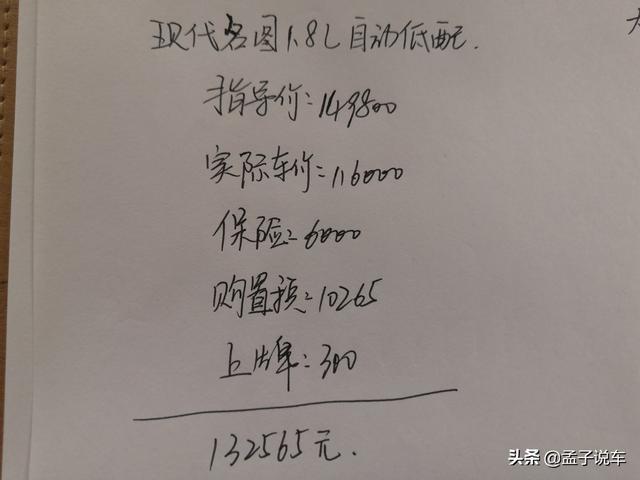 现代名图1.8L自动低配.
指导价:149800
实际车价:116000
保险:6000
购置税:10265
上牌:300
132565元.
头条 @孟子说车